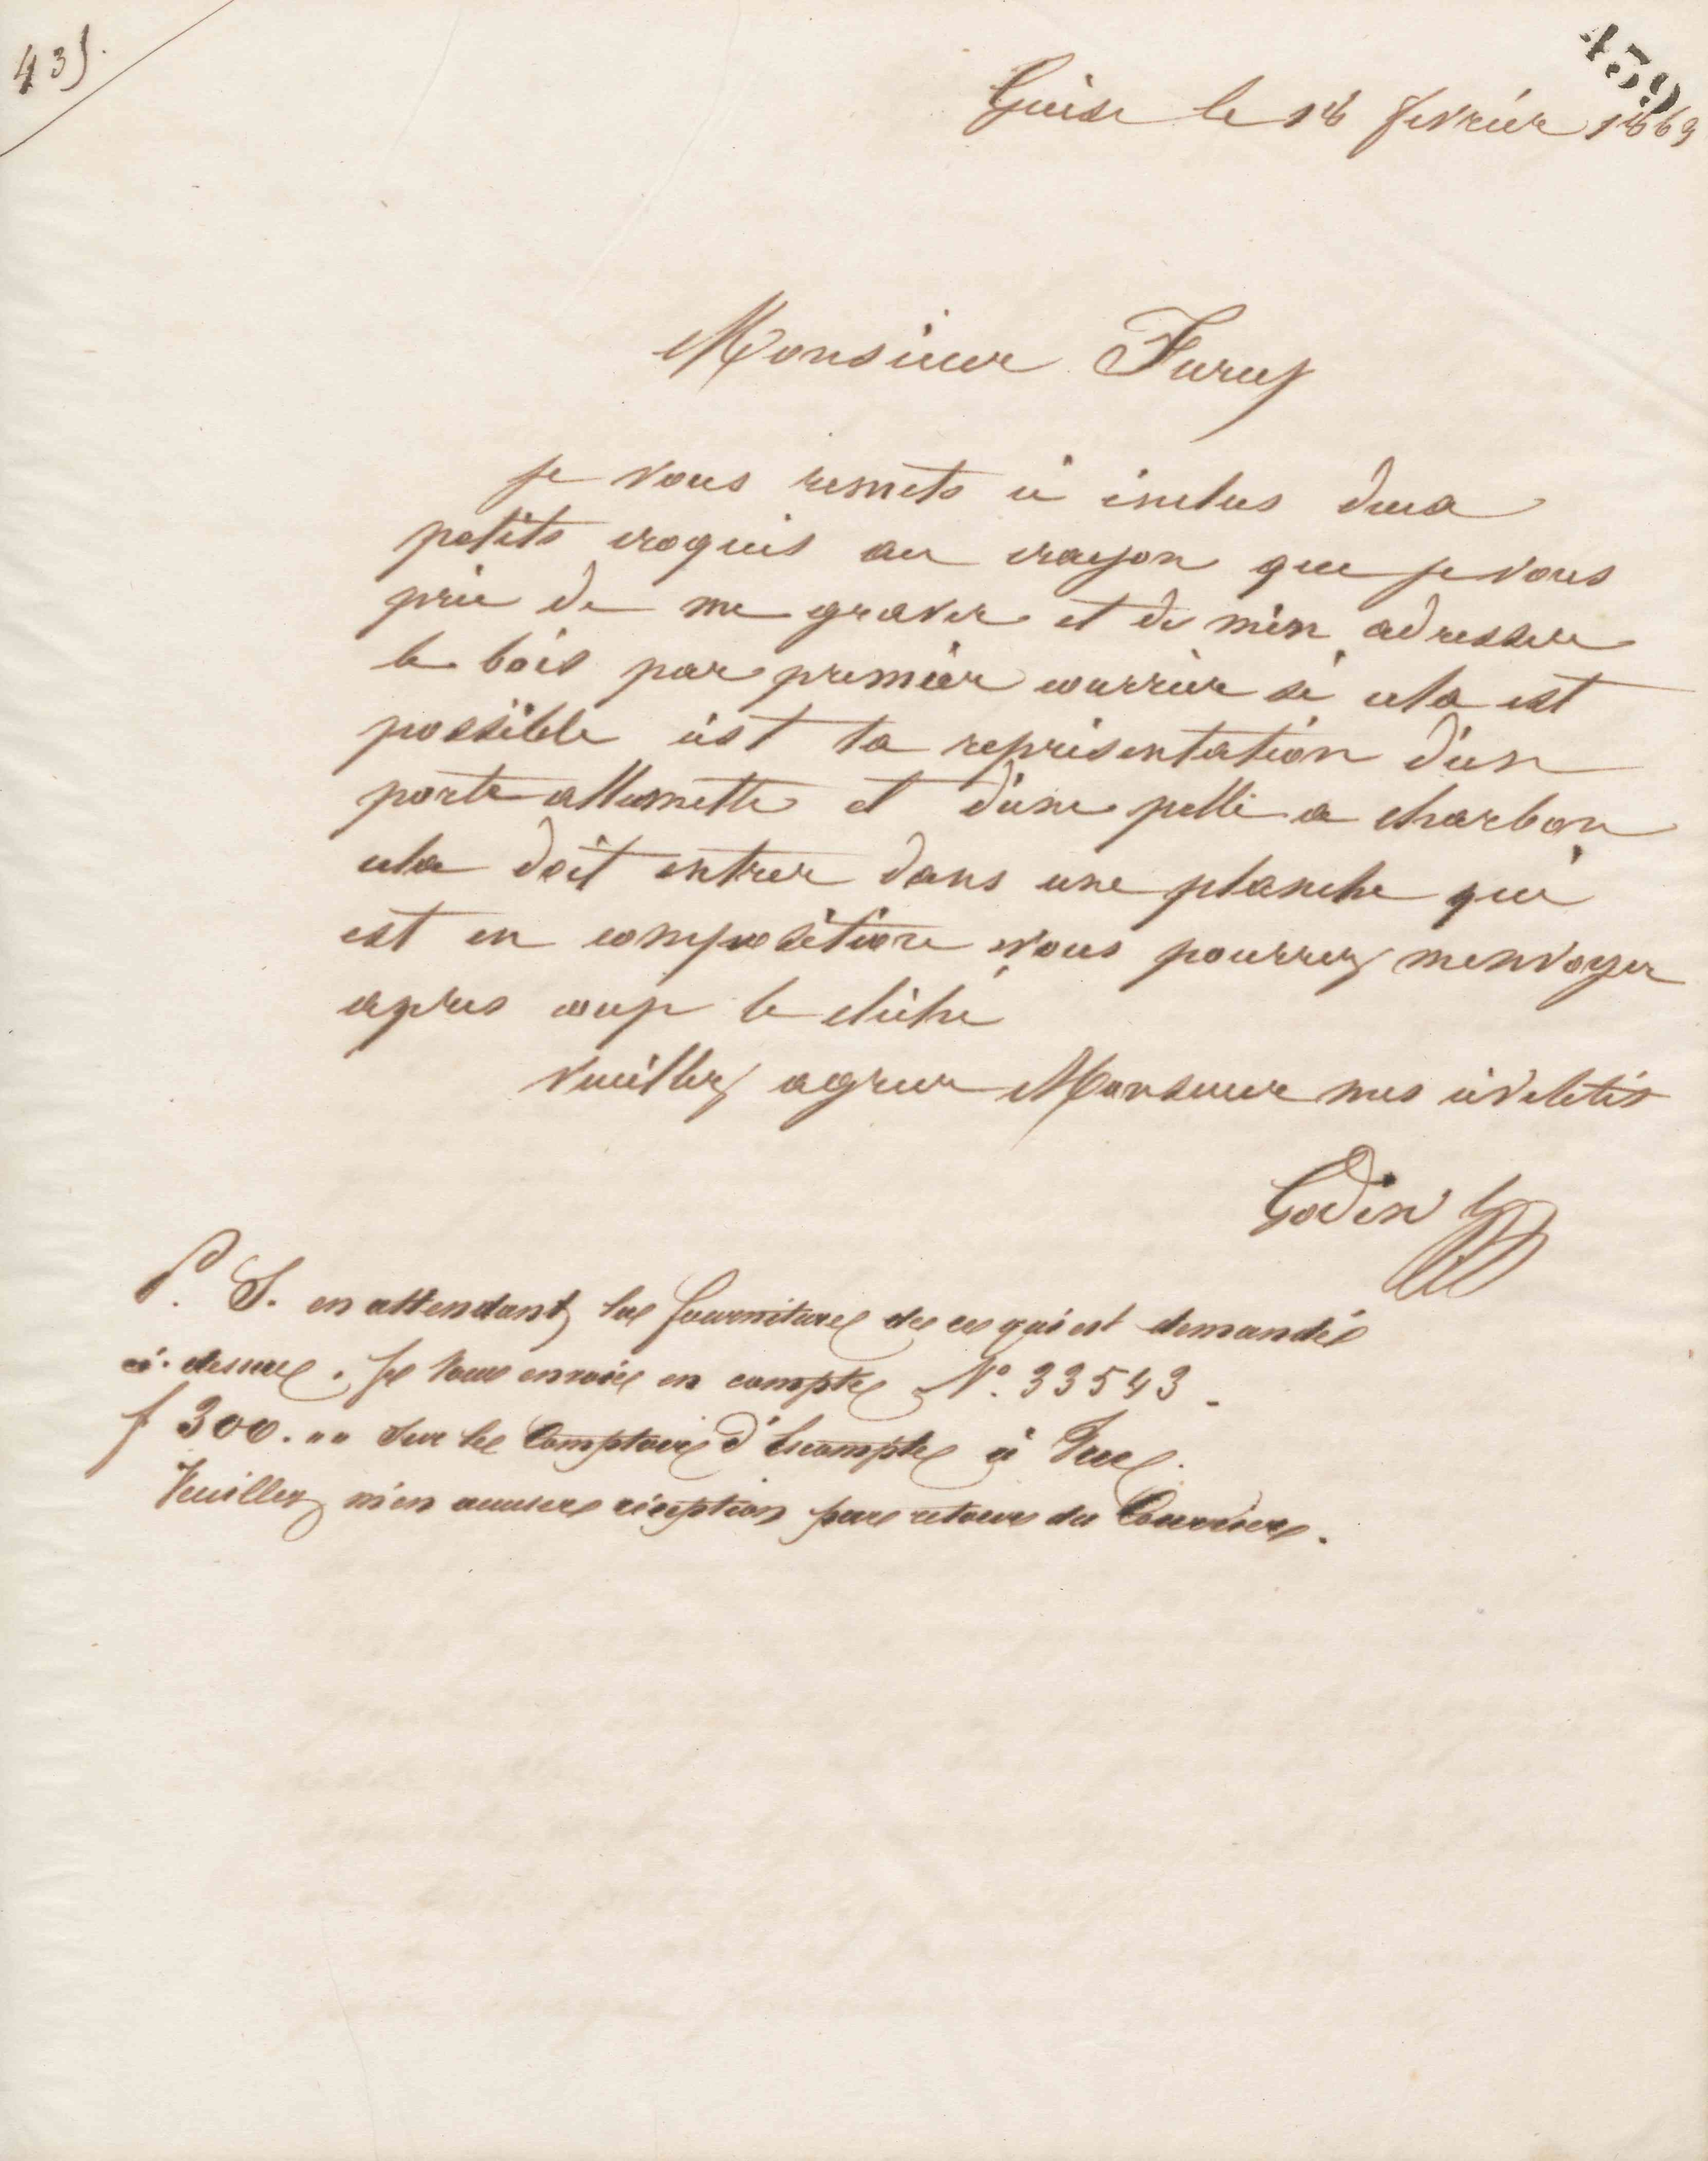 435.
459
Guise le 18 fevrier 1869
Monsieur
je vous remets ci inclus deux
petits croquis au crayon que je vous
prie de me graver et de m'en adresser
le bois par premier courrier si cela est
possible c'est la représentation d'un
porte allumette et d'une pelle a charbon
cela doit entrer dans une planche qui
est en composition vous pourrez menvoyer
apres coup le cliché
Veuillez agreer Monsieur mes civilités
Godin
P. S. en attendant la fourniture de ce qui est demandé
ci-dessus. Je vous envoie en compte N°. 33543.
f 300. " sur le Comptoir d'Escompte à vue.
Veuillez m'en accuser réception par retour du Courrier.